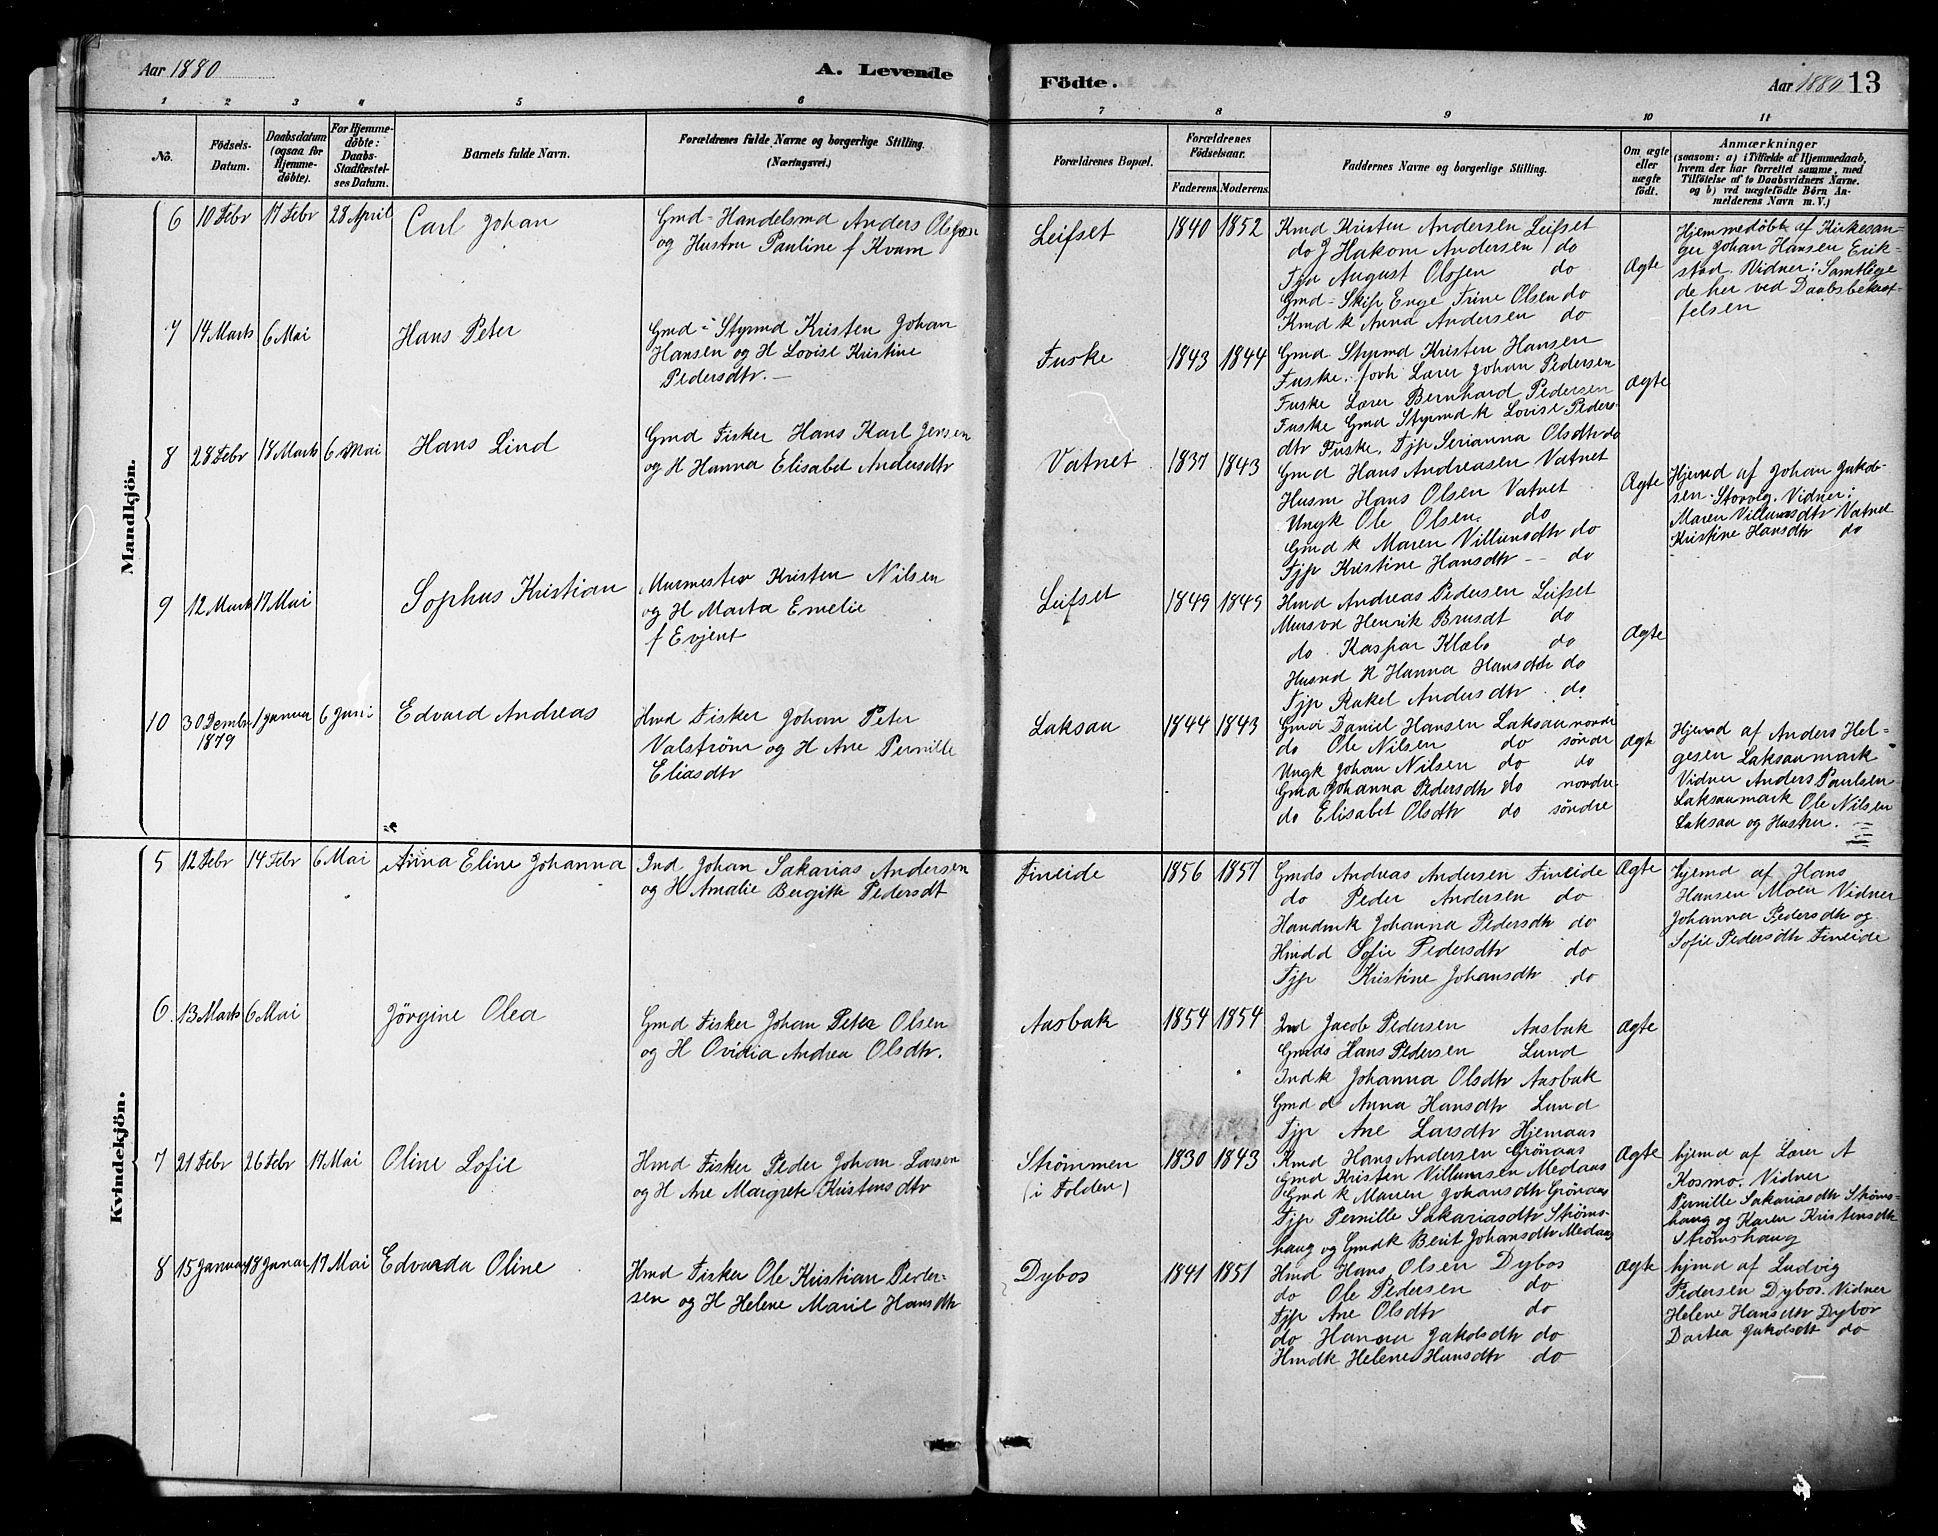 Aar 1880
A. Levende
Födte.
Aar 1880 13
1 2 3 4 5 6 7 8 9 10 11
No.
Födsels-
Datum.
Daabsdatum
(ogsaa for
Hjemme-
døbte).
For Hjemme-
døbte:
Daabs-
Stadfæstel-
ses Datum.
Barnets fulde Navn.
Forældrenes fulde Navne og borgerlige Stilling.
(Næringsvei.)
Forældrenes Bopæl.
Forældrenes
Födselsaar.
Faderens. Moderens.
Faddernes Navne og borgerlige Stilling.
Om ægte
eller
uægte
födt.
Anmærkninger
(saasom: a) i Tilfælde af Hjemmedaab,
hvem der har forrettet samme, med
Tilföielse af to Daabsvidners Navne.
og b) ved uægtefödte Börn An-
melderens Navn m. V.)
Mandkjön.
6 10 Febr 17 Febr 28 April Carl Johan
Gmd- Handelsmd Anders Olsen
og Hustru Pauline f Kvam
Leifset 1840 1852
Kmd Kristen Andersen Leifset
do J Hakom Andersen do
Tjp August Olsen do
Gmd- Skip Enge Trine Olsen do
Kmd k Anna Andersen do
Ægte
Hjemmedøbt af Kirkesan-
ger Johan Hansen Erik-
stad. Vidner: Samtlige
de her ved Daabsbekræf-
telsen
7 14 Marts 6 Mai Hans Peter
Gmd - Styrmd Kristen Johan
Hansen og H Lovise Kristine
Pedersdtr. -
Fuske 1843 1844
Gmd Styrmd Kristen Hansen
Fuske. forh Lærer Johan Pedersen
Fuske Lærer Bernhard Pedersen
Fuske Gmd Styrmd k Lovise Peders-
dtr Fuske, Tjp Serianna Olsdtr do
Ægte
8 28 Febr 18 Marts 6 Mai Hans Lind
Gmd Fisker Hans Karl Jensen
og H Hanna Elisabet Andersdtr
Vatnet 1837 1843
Gmd Hans Andreasen Vatnet
Husm Hans Olsen Vatnet
Ungk Ole Olsen. do
Gmd k Maren Villumsdtr do
Tjp Kristine Hansdtr - do
Ægte
Hjemd af Johan Jakob-
sen Storvig. Vidner:
Maren Villumsdtr Vatnet
Kristine Hansdtr do
9 12 Marts 17 Mai Sophus Kristian
Murmester Kristen Nilsen
og H Marta Emelie
f Evjent
Leifset 1849 1849
Hmd Andreas Pedersen Leifset
Mursvd Henrik Brusdt do
do. Kaspar Klæbo do
Husmd k Hanna Hansdtr do
Tjp Rakel Andersdtr. do
Ægte
10 30 Decmbr 1 Januar 6 Juni Edvard Andreas
1879
Hmd Fisker Johan Peter
Valstrøm og H Ane Pernille
Eliasdtr
Laksaa 1844 1843
Gmd Daniel Hansen Laksaa nordre
do Ole Nilsen do søndre
Ungk Johan Nilsen do do
Gmd Johanna Pedersdtr do nordre
do Elisabet Olsdtr do søndre
Ægte
Hjemd af Anders Hel-
gesen Laksaamark
Vidner Anders Paulsen
Laksaamark Ole Nilsen
Laksaa og Hustru.
Kvindekjön.
5 12 Febr 14 Febr 6 Mai Anna Eline Johanna
Ind Johan Sakarias Andersen
og H Amalie Bergitte Pedersdt
Fineide 1856 1857
Gmds Andreas Andersen Fineide
do Peder Andersen do
Handmk Johanna Pedersdtr do
Hmd d Sofie Pedersdtr do
Tjp Kristine Johansdtr do
Ægte
hjemd af Hans
Hansen Moen Vidner
Johanna Pedersdtr og
Sofie Pedersdtr Fineide
6. 13 Marts 6 Mai Jörgine Olea
Gmd Fisker Johan Peter Olsen
og H Ovidia Andrea Olsdtr.
Aasbak 1854 1854
Ind Jacob Pedersen Aasbak
Gmds Hans Pedersen Lund
Ind k Johanna Olsdtr Aasbak
Gmd d Anna Hansdtr Lund
Tjp Ane Larsdtr Hjemaas
Ægte
7 21 Febr 26 Febr 17 Mai Oline Sofie
Hmd Fisker Peder Johan Larsen
og H Ane Margrete Kristensdtr
Strømmen
(i Folden)
1830 1843
Kmd Hans Andersen Grönaas
Gmd Kristen Villumsen Medaas
Gmd k Maren Johansdtr Grönaas
Tjp Pernille Sakariasdtr Strøms-
haug og Gmdk Berit Johansdtr Medaas
Ægte
hjemd af Lærer A
Kosmo. Vidner
Pernille Sakariasdtr Strøms-
haug og Karen Kristensdtr
Strømshaug
8 15 Januar 18 Januar 17 Mai Edvarda Oline
Hmd Fisker Ole Kristian Peder-
sen og H Helene Marie Hansdtr
Dybos 1841 1851
Hmd Hans Olsen Dybos
do Ole Pedersen do
Tjp Ane Olsdtr do
do Hanna Jakobsdtr do
Hmdk Helene Hansdtr do
Ægte
hjmd af Ludvig
Pedersen Dybos. Vidner
Helene Hansdtr Dybos
Dortea Jakobsdt do